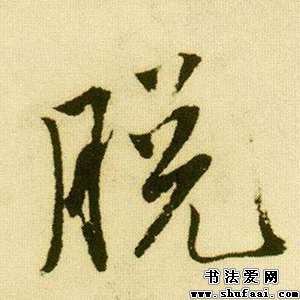 脱
书法爱网
www.shufaai.com